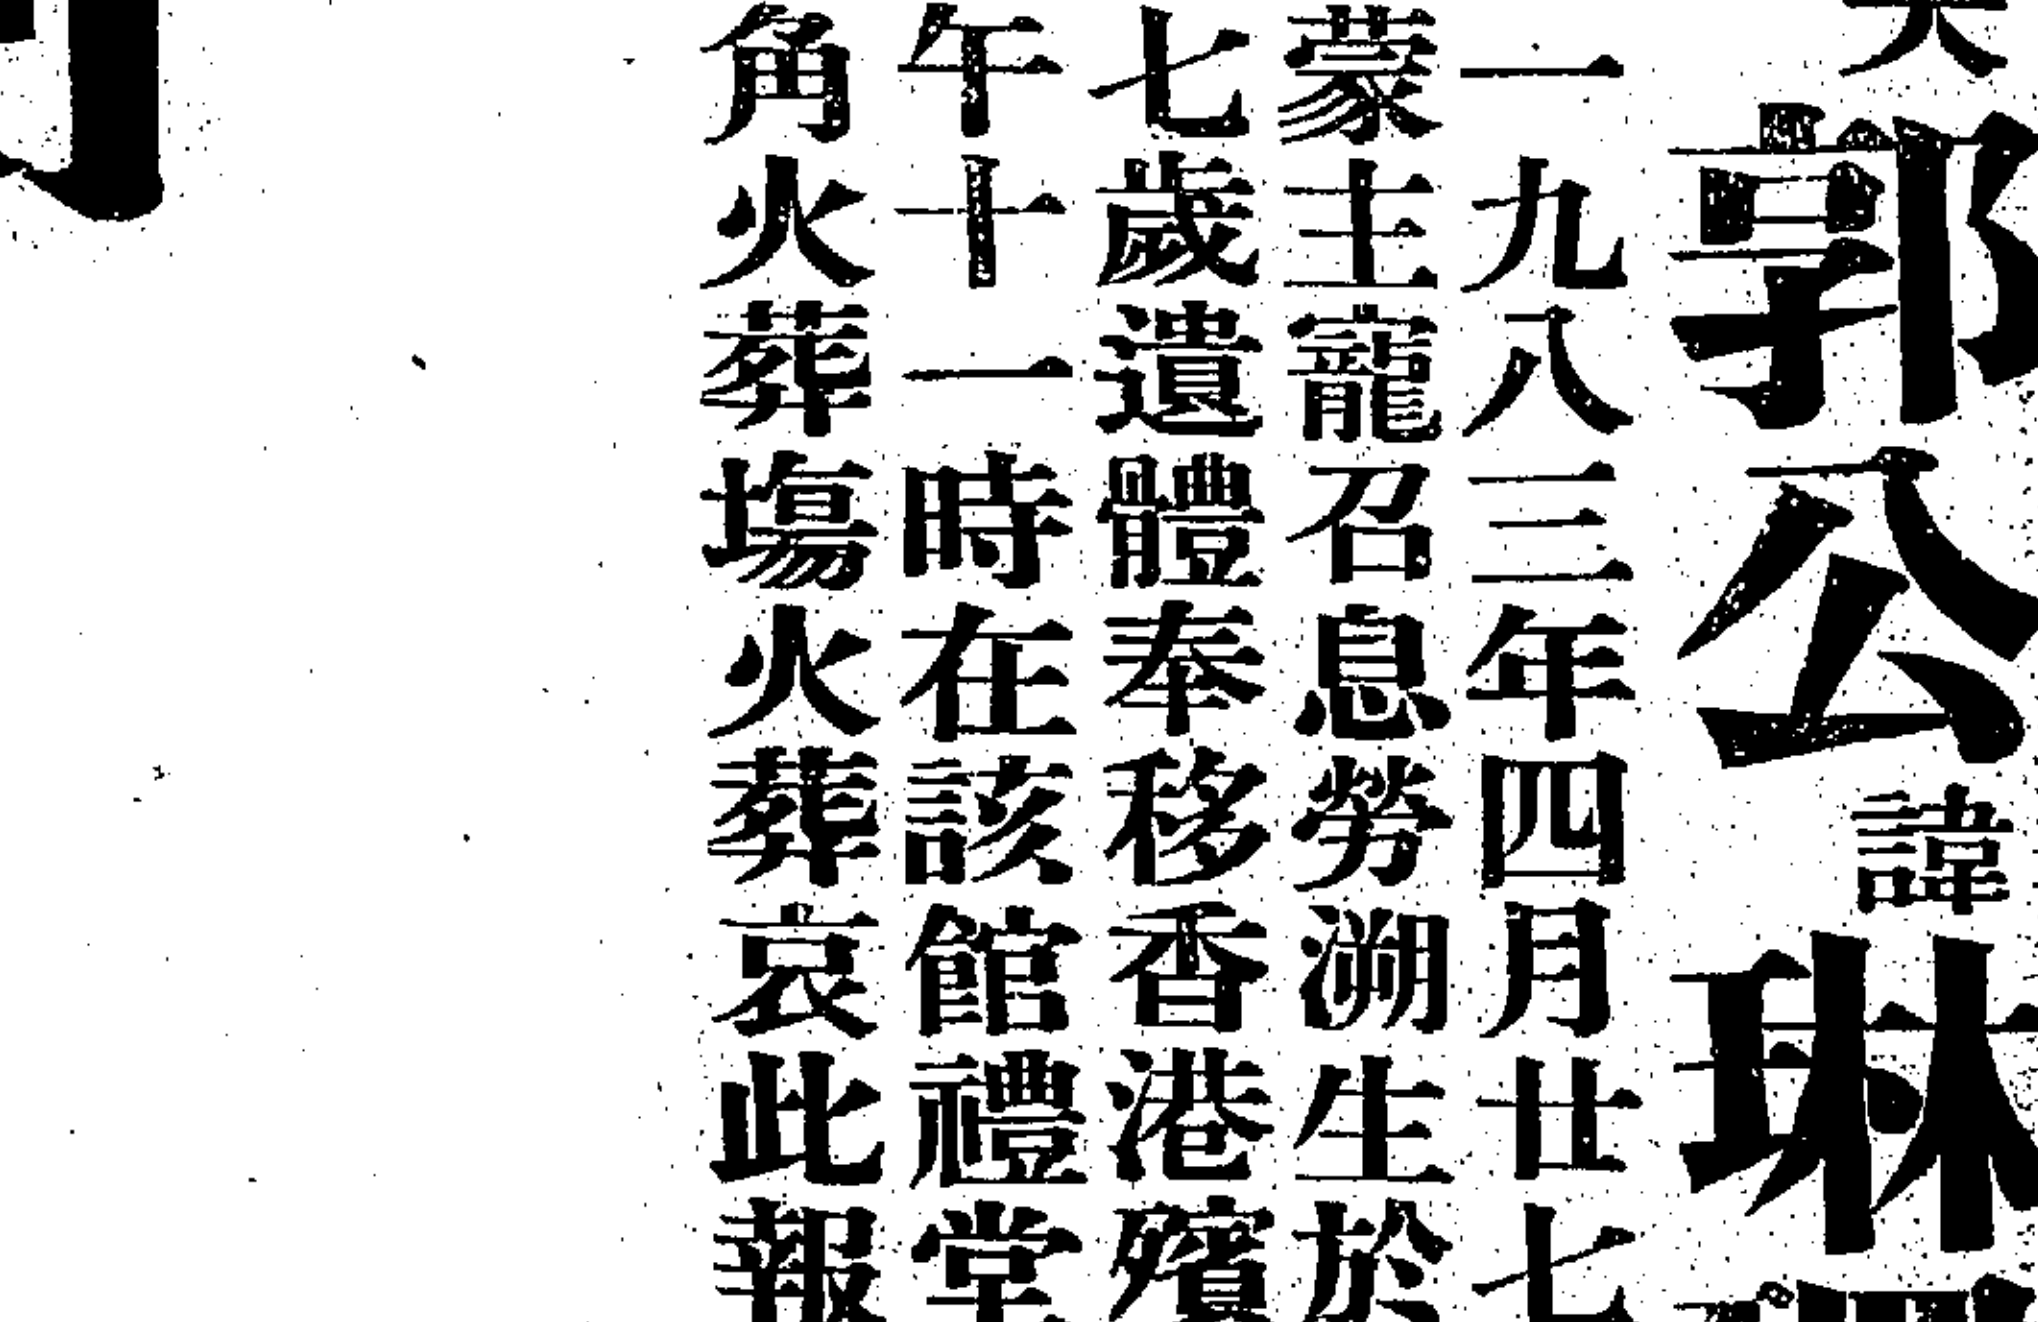 郭公諱琳
一九八三年四月廿七
蒙主寵召息勞溯生於
七歲遺體奉移香港殯
午十一時在該館禮堂
角火葬塲火葬哀此報